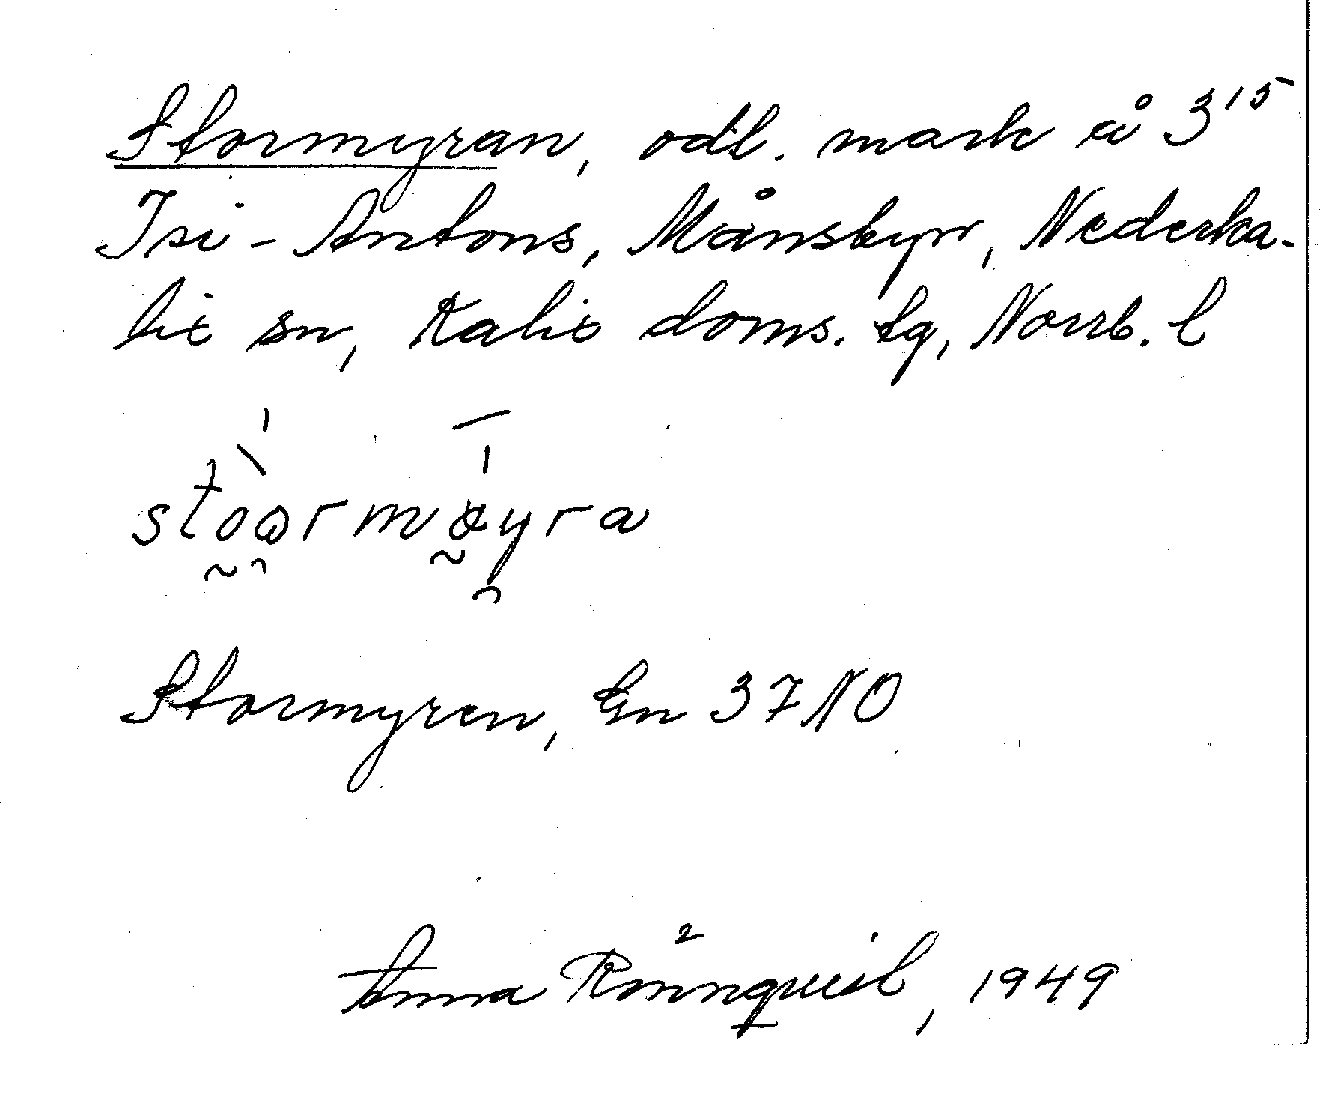 Stormyran, odl. mark å 3¹⁵
Isi-Antons, Månsbyn, Nederka-
lix sn, Kalix doms. tg, Norrb. l
stoωrmøyra
Stormyren, En 37 NO
Anna Rönnqvist, 1949